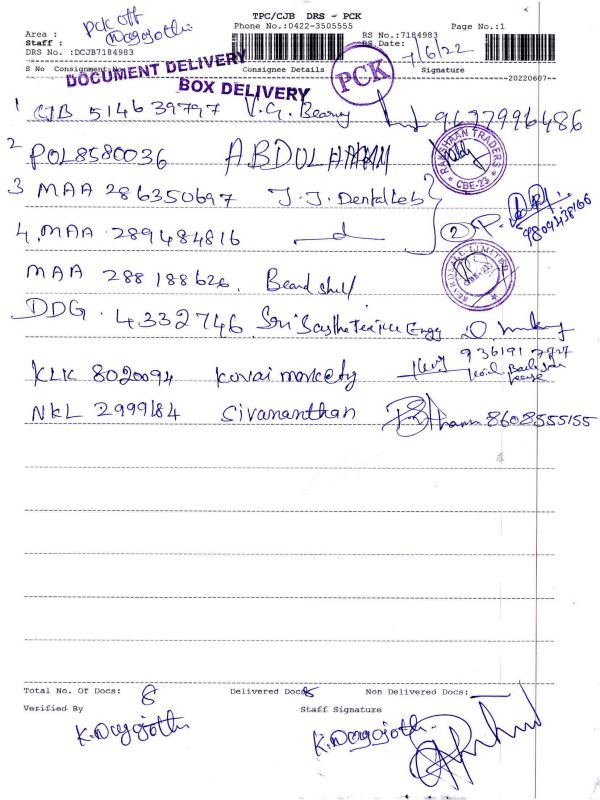 TPC/CJB DRS - PCK
PCK off
Phone No.:0422-3505555 Page No.:1
Area :
Staff : RS No.:7184983
DRS No. :DCJB7184983 RS Date: 7/6/22
S No Consignment No Consignee Details Signature
--20220607--
DOCUMENT DELIVERY
BOX DELIVERY
PCK
1 CJB 514639797 V.G. Beary 9637996486
2 POL8580036 ABDUL
RAKSHAAN TRADERS
CBE-23
3 MAA 286350697 J.J. Dental Leb
4. MAA 289484816 (2) P.
MAA 288188626. Beard shelf
LIMITED
DDG. 4332746. Sri Engg
KLK 8020094 Kovai
NKL 2999184 Sivananthan 8608555155
Total No. Of Docs: 8 Delivered Docs 8 Non Delivered Docs:
Verified By Staff Signature